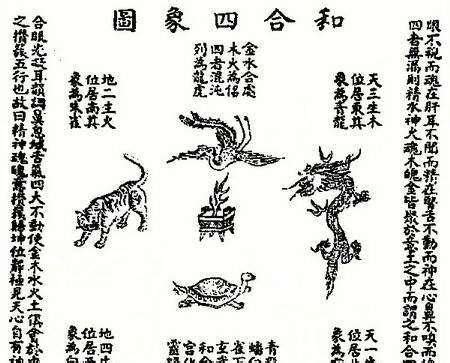 和合四象圖
眼不視而魂在肝耳不聞而精在腎舌不動而神在心鼻不嗅而
四者無漏則精水神火魂木魄金皆聚於意土之中而謂之和合
天三生木
位居東其
象為青龍
金水合處
木火為侶
四者混沌
列為龍虎
地二生火
位居南其
象為朱雀
天一
位居北
象為
青龍
蟠
雀
玄武
和合
宮
靈
地四生
位居西
象為白
合眼光凝耳韻調鼻息緘舌氣四大不動使金木水火土俱會於
之攢簇五行也故曰精神魂魄意攢簇歸坤位靜極見天心自有神